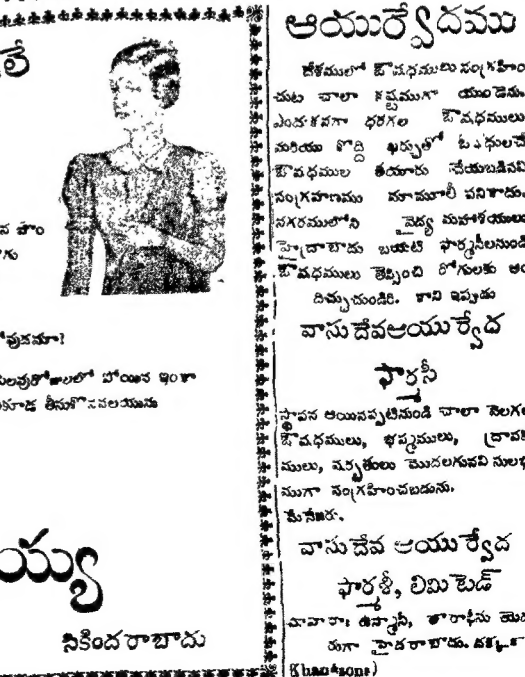 లే
న పౌం
గు
పుడమా?
లవురోజులలో పోయిన ఇంకా
కూడ తీసుకొనవలయును
య్య
సికింద రాబాదు
ఆయుర్వేదము
దేశములో ఔషధములు సంగ్రహిం
చుట చాలా కష్టముగా యుండెను.
ఎందుకనగా ధరగల ఔషధములు
మరియు కొద్ది ఖర్చుతో
ఔషధముల తయారు చేయబడినవి
సంగ్రహణము మామూలీ పనికాదు.
నగరములోని వైద్య మహాశయులు
హైద్రాబాదు బయటి ఫార్మసీలనుండి
ఔషధములు తెప్పించి రోగులకు అం
దిచ్చుచుండిరి. కాని ఇప్పుడు
వాసుదేవఆయుర్వేద
ఫార్మసీ
స్థాపన అయినప్పటినుండి చాలా వెలగల
ఔషధములు, భస్మములు, ద్రావక
ములు, షర్బతులు మొదలగునవి సులభ
ముగా సంగ్రహించబడును.
మేనేజరు.
వాసుదేవ ఆయుర్వేద
ఫార్మశీ, లిమిటెడ్
రుగా హైదరాబాదు.
Khan&sons)